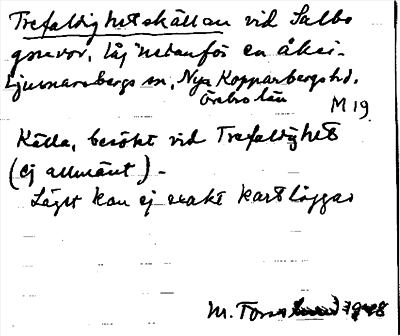 Trefaldighetskällan vid Salbo
gruvor, låg nedanför en åker.
Ljusnarsbergs sn, Nya Kopparbergs hd.
Örebro län
M 19
Källa, besökt vid Trefaldighet
(ej allmänt) -
Läget kan ej exakt kartläggas
M. 1948